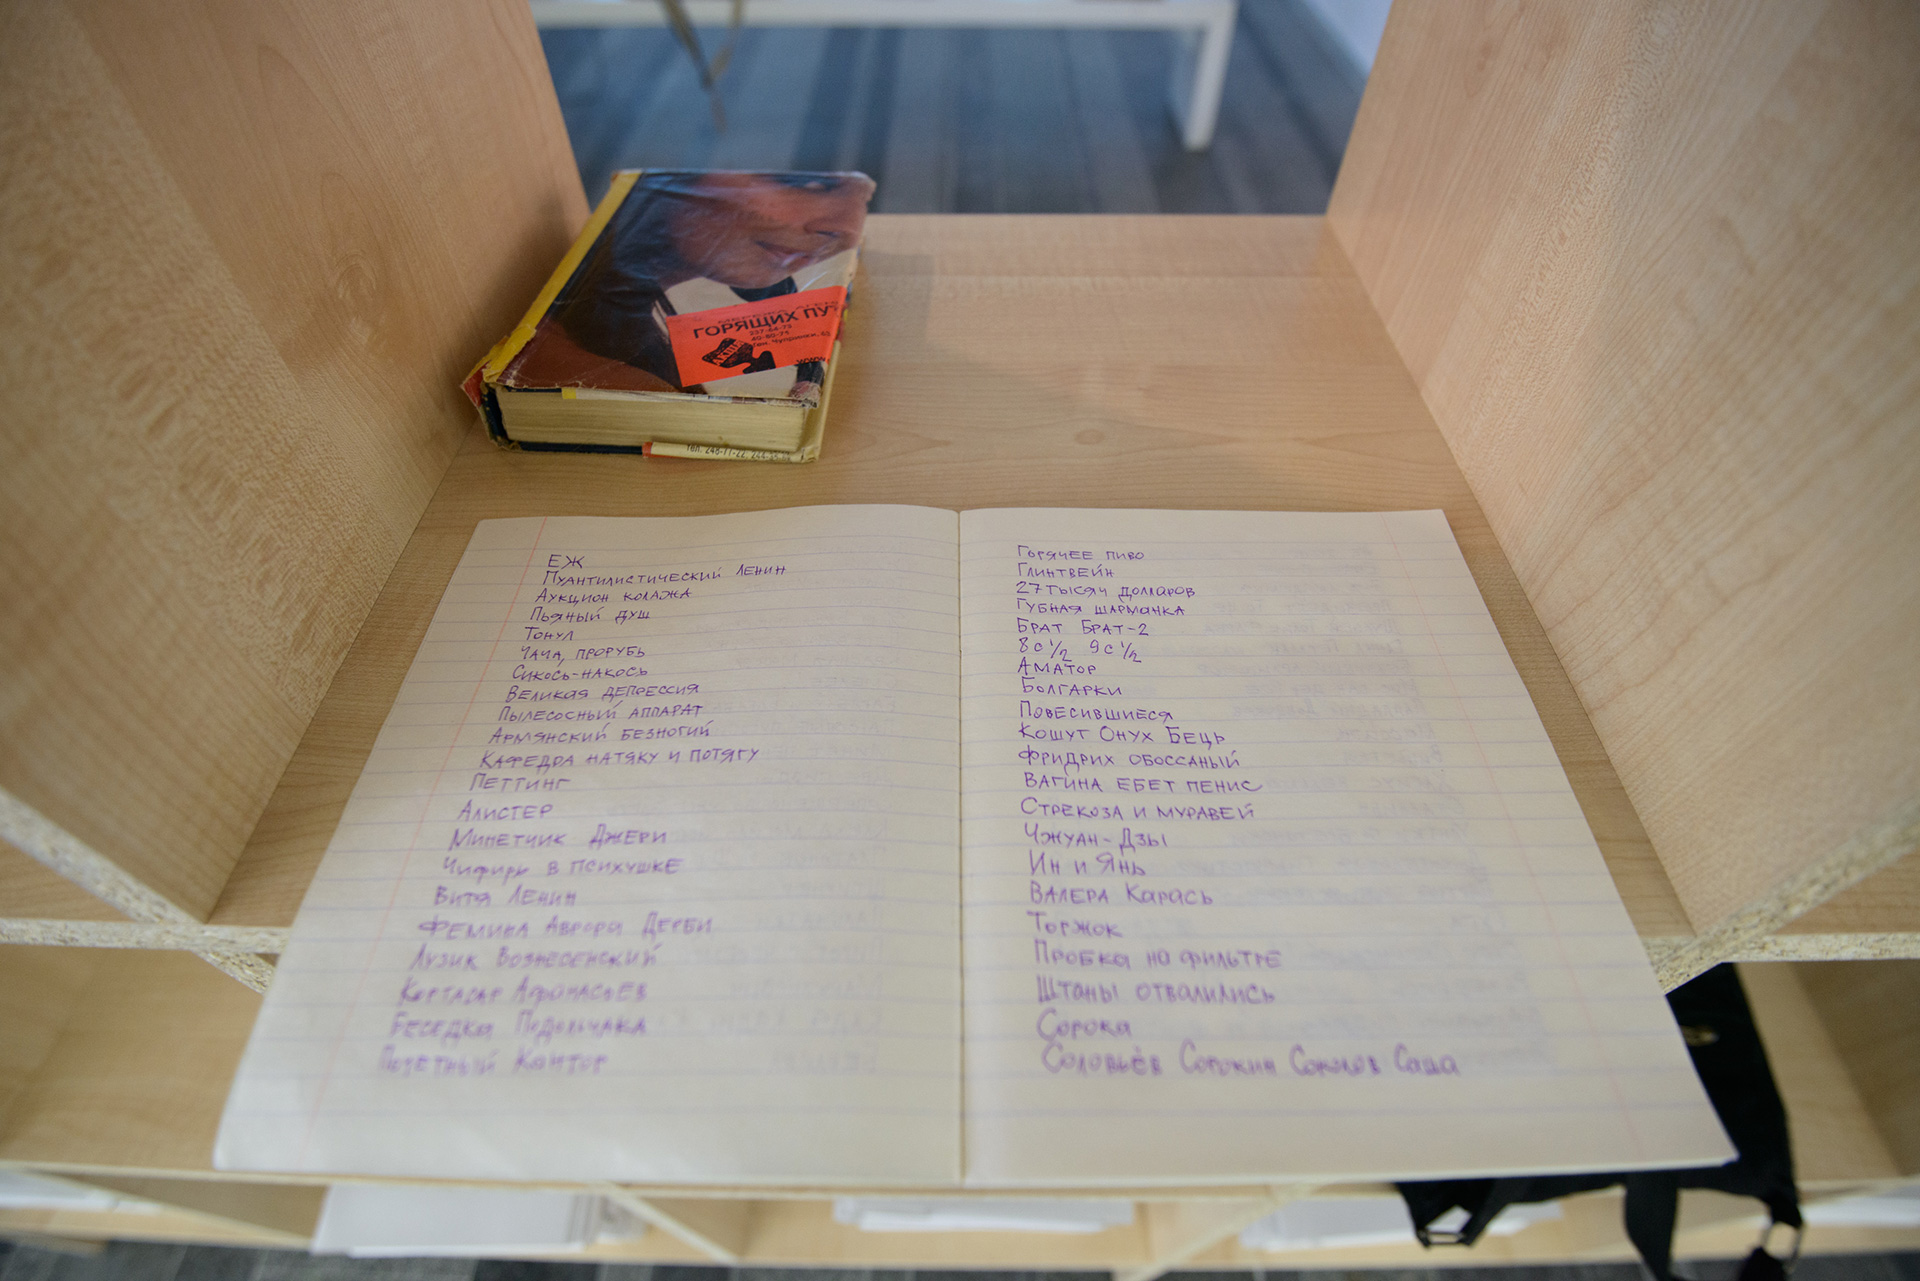 ГОРЯЩИХ ПУ
237-64-73
40-80-71
Ген. Чупринки, 65
www
Тел. 248-71-22, 244-
ЕЖ
Пуантилистический Ленин
Аукцион колажа
Пьяный душ
Тонул
Чача, прорубь
Сикось-накось
Великая депрессия
Пылесосный аппарат
Армянский безногий
Кафедра натяку и потягу
Петтинг
Алистер
Минетчик Джери
Чифирь в психушке
Витя Ленин
Фемина Аврора Дерби
Лузик Вознесенский
Афанасьев
Беседка Подольчака
Кантор
Горячее пиво
Глинтвейн
27 тысяч долларов
Губная шармачка
Брат Брат-2
8 с 1/2 9 с 1/2
Аматор
Болгарки
Повесившиеся
Кошут Онух Бецр
Фридрих обоссаный
Вагина ебет пенис
Стрекоза и муравей
Чжуан-Дзы
Ин и Янь
Валера Карась
Торжок
Пробка на фильтре
Штаны отвалились
Сорока
Соловьёв Сорокин Соколов Саша